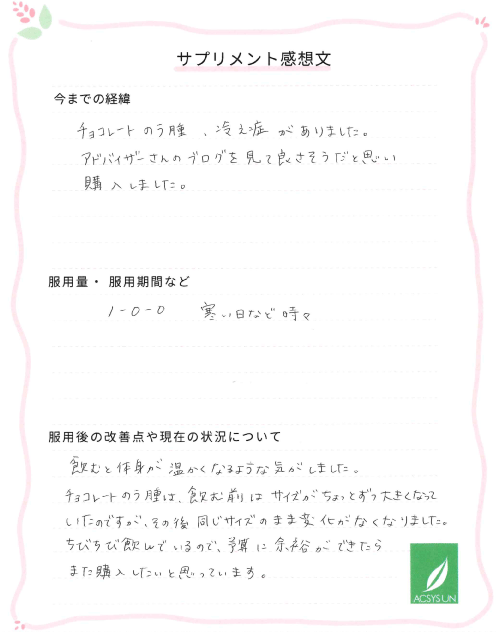 サプリメント感想文
今までの経緯
チョコレートのう腫、冷え症がありました。
アドバイザーさんのブログを見て良さそうだと思い
購入しました。
服用量・服用期間など
1-0-0 寒い日など時々
服用後の改善点や現在の状況について
飲むと体身が温かくなるような気がしました。
チョコレートのう腫は、飲む前はサイズがちょっとずつ大きくなって
いたのですが、その後同じサイズのまま変化がなくなりました。
ちびちび飲んでいるので、予算に余裕ができたら
また購入したいと思っています。
ACSYSUN